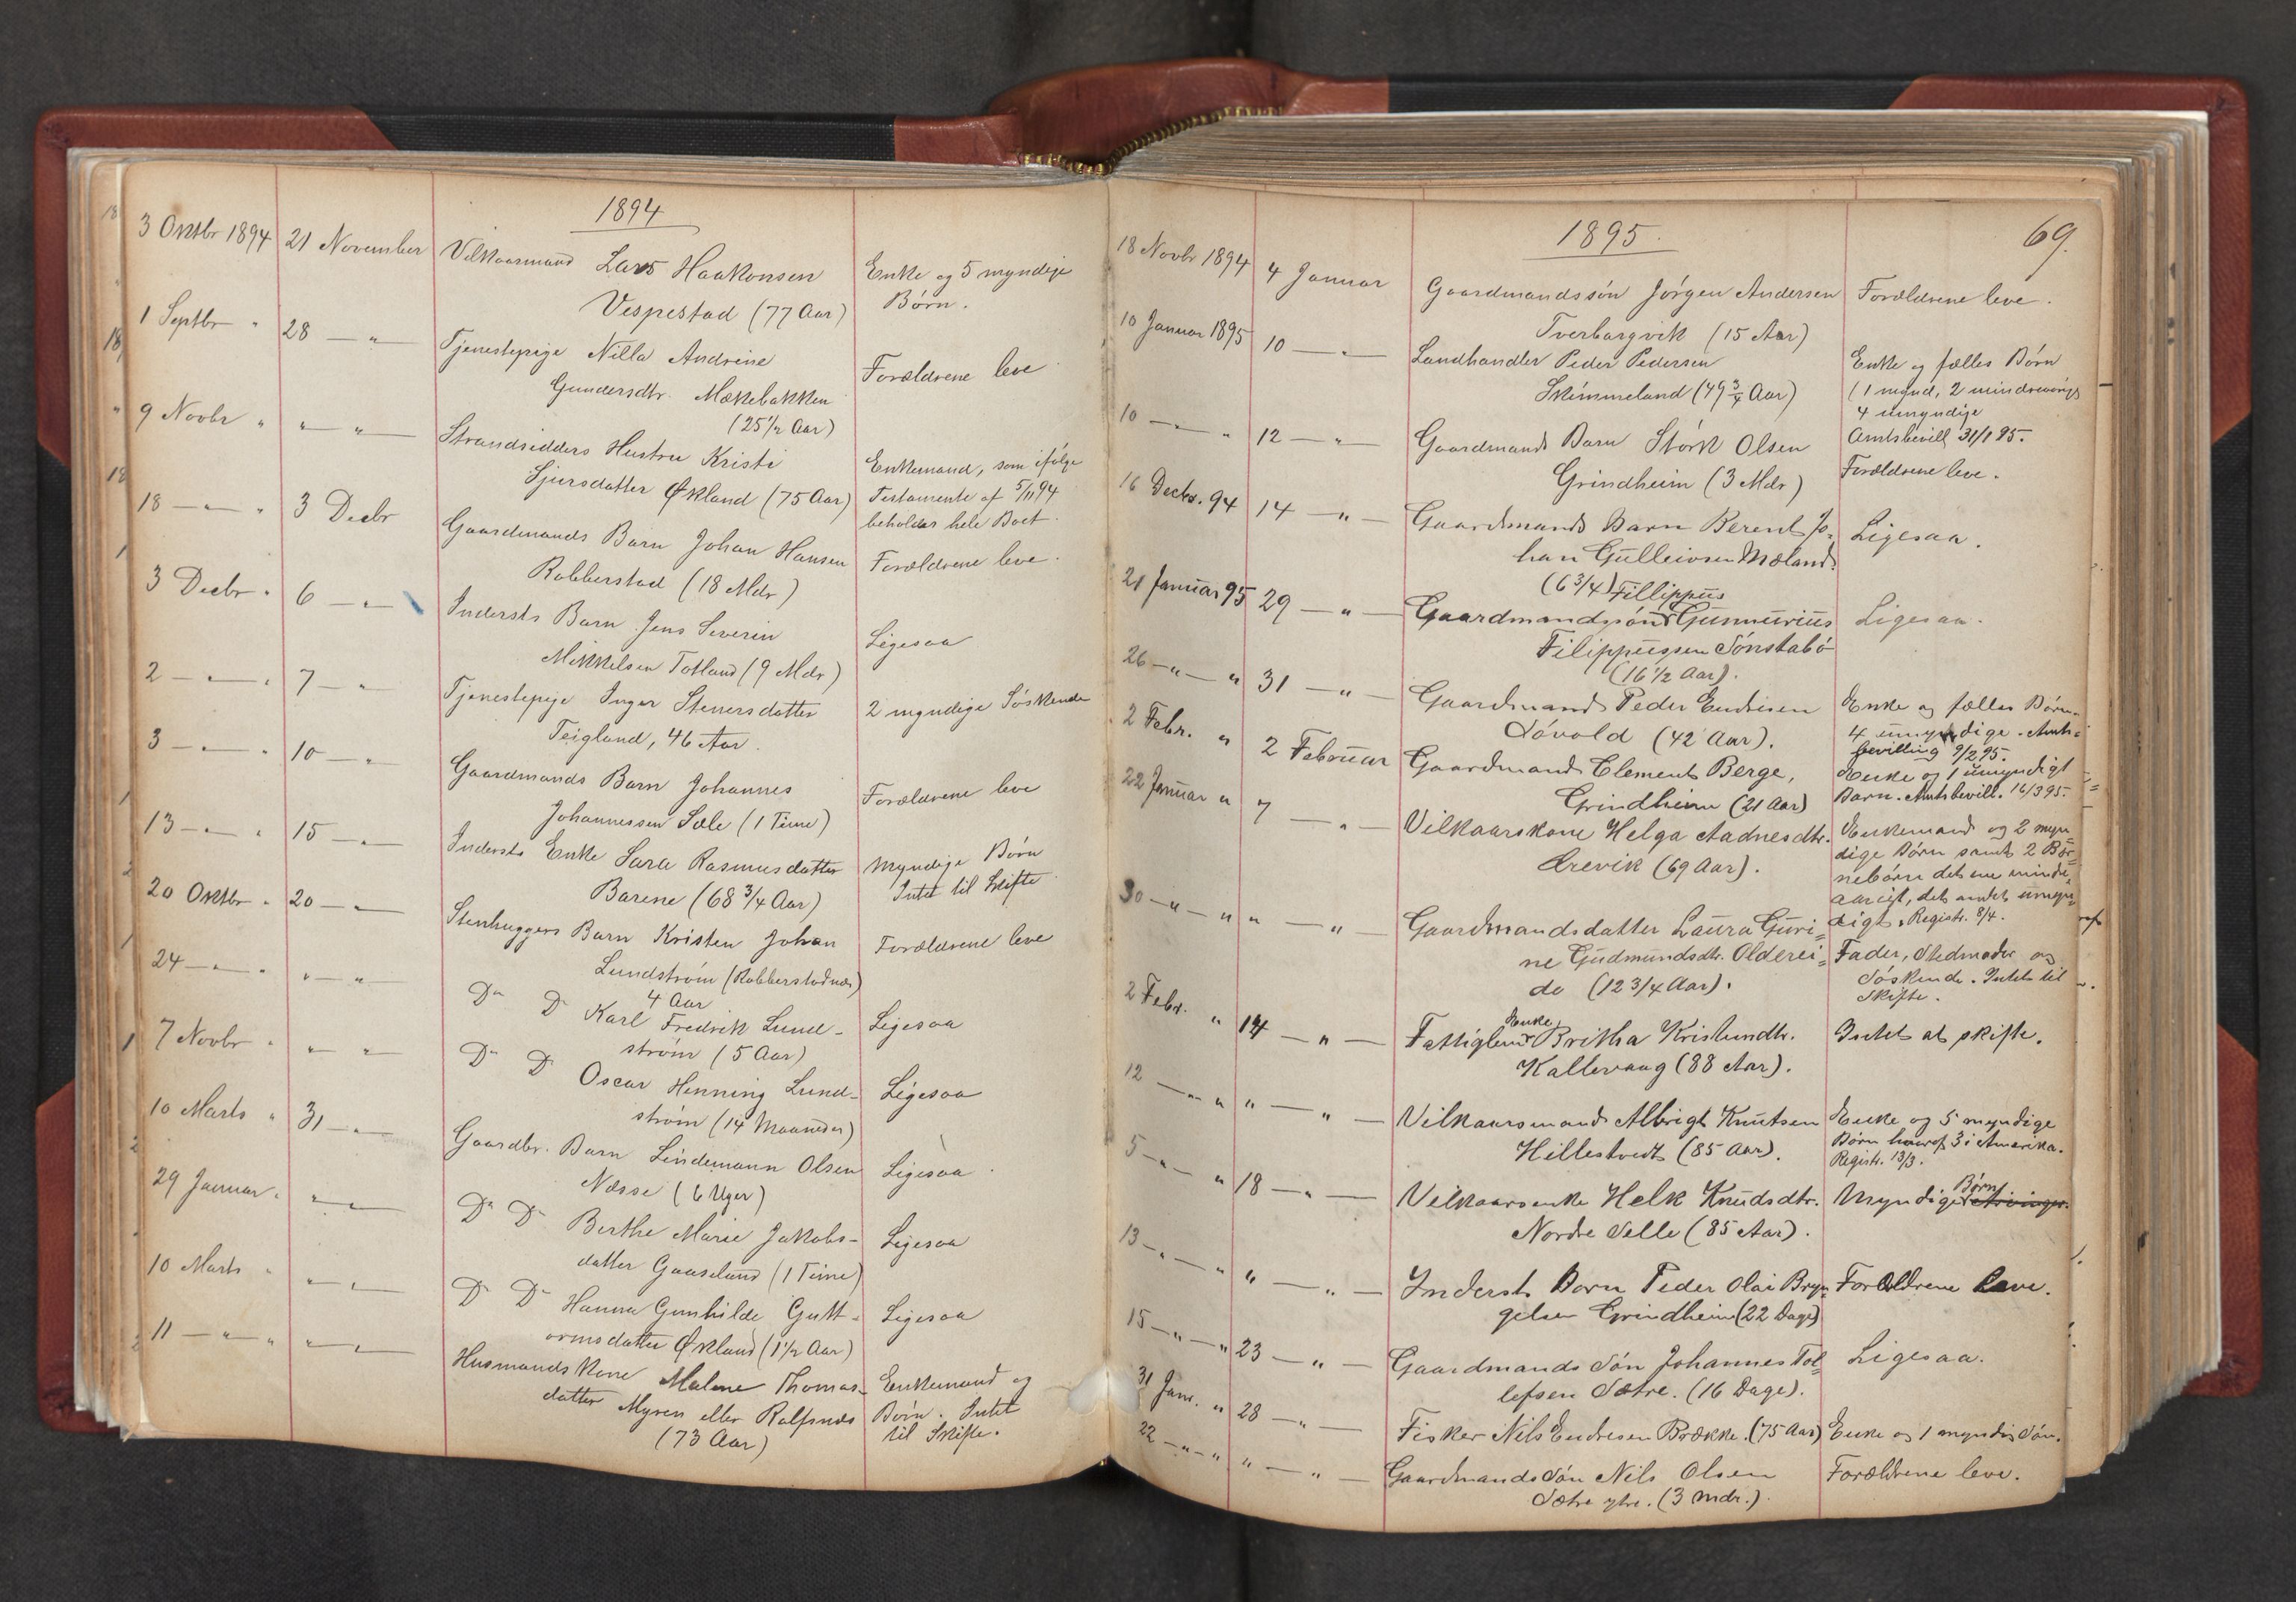 1894
3 Oktbr 1894 21 November Vilkaarsmand Lars Haakonsen Enke og 5 myndige
Vespestad (77 Aar) Børn.
1 Septbr " 28 — " — Tjenestepige Nilla Andrine Forældrene leve.
Gundersdtr. Mækebakken
(25 1/2 Aar)
9 Novbr " " — " — Strandsidders Hustru Kristi Enkemand, som ifølge
Sjursdatter Økland (75 Aar) Testamente af 5/11 94
beholder hele Boet.
18 — " — " 3 Decbr Gaardmands Barn Johan Hansen Forældrene leve.
Robberstad (18 Mdr)
3 Decbr " 6 — " — Indersts Barn Jens Severin Ligesaa
Mikkelsen Totland (9 Mdr)
2 — " — " 7 — " Tjenestepige Inger Steners datter 2 myndige Søskende
Teigland, 46 Aar.
3 — " — " 10 — " Gaardmands Barn Johannes Forældrene leve
Johannessen Sæle (1 Time)
13 — " — " 15 — " — Indersts Enke Sara Rasmusdatter Myndige Børn
Barene (68 3/4 Aar) Intet til Skifte
20 Oktbr " 20 — " — Stenhuggers Barn Kristen Johan Forældrene leve
Lundstrøm (Robberstadnes)
4 Aar
24 — " — " " — " Do Do Karl Fredrik Lund- Ligesaa
strøm (5 Aar)
7 Novbr " " — " Do Do Oscar Henning Lund- Ligesaa
strøm (14 Maaneder)
10 Marts " 31 — " — Gaardbr. Barn Lindemann Olsen Ligesaa
Næsse (6 Uger)
29 Januar " " — " — Do Do Berthe Marie Jakobs- Ligesaa
datter Gaaseland (1 Time)
10 Marts " " — " — Do Do Hanna Gunhilde Gutt- Ligesaa
ormsdatter Økland (1 1/2 Aar)
11 — " — " " — " — Husmands Kone Malene Thomas- Enkemand og
datter Myren eller Rolfsnæs Børn. Intet
(73 Aar) til Skifte.
1895. 69.
18 Novbr 1894 4 Januar Gaardmandssøn Jørgen Andersen Forældrene leve.
Tverbargvik (15 Aar)
10 Januar 1895 10 — " — Landhandler Peder Pedersen Enke og fælles Børn
Skimmeland (49 3/4 Aar) (1 mynd, 2 mindreaarige
4 umyndige
Amtsbevill 31/1 95.
10 — " — " 12 — " — Gaardmands Barn Størk Olsen Forældrene leve.
Grindheim (3 Mdr)
16 Decbr. 94 14 — " — Gaardmands Barn Berent Jo- Ligesaa.
han Gulleivsen Mæland.
(6 3/4)
21 Januar 95 29 — " — Gaardmandssøn Fillippus Gunnerius Ligesaa.
Filippussen Sønstabø
(16 1/2 Aar).
26 — " — " 31 — " — Gaardmand Peder Endresen Enke og fælles Børn.
Løvold (42 Aar). 4 umyndige. Amts-
bevilling 9/2 95.
2 Febr. " 2 Februar Gaardmand Clement Berge, Enke og 1 umyndigt
Grindheim (21 Aar) Barn. Amtsbevill. 16/3 95.
22 Januar " 7 — " — Vilkaarskone Helga Aadnesdtr. Enkemand og 2 myn-
Arevik (69 Aar). dige Børn samt 2 Bør-
nebørn det ene minde-
aarigt, det andet umyn-
digt. Registr. 8/4.
30 — " — " " — " — Gaardmandsdatter Laura Guri- Fader, Stedmoder og
ne Gudmundsdtr. Olderei- Søskende. Intet til
de (12 3/4 Aar). Skifte.
2 Febr. " 14 — " — Fattiglem Enke Britha Kristendtr. Intet at skifte.
Kallevaag (88 Aar).
12 — " " " — " — Vilkaarsmand Albrigt Knutsen Enke og 5 myndige
Hillestvedt (85 Aar). Børn hvoraf 3 i Amerika.
Registr. 13/3.
5 — " — " 18 — " — Vilkaarsenke Helk Knudsdtr. Myndige Børn
Nordre Selle (85 Aar).
13 — " — " " — " — Inderst Barn Peder Olai Bryn- Forældrene leve.
gelsen Grindheim (22 Dage)
15 — " — " 23 — " — Gaardmands Søn Johannes Tol- Ligesaa.
lefsen Sætre. (16 Dage).
31 Jan. " 28 — " — Fisker Nils Endresen Brække. (75 Aar) Enke og 1 myndig Søn.
22 — " — " " — " — Gaardmands Søn Nils Olsen Forældrene leve.
Sætre ytre. (3 mdr.).